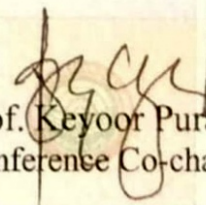 of. Keyoor Pur
nference Co-cha